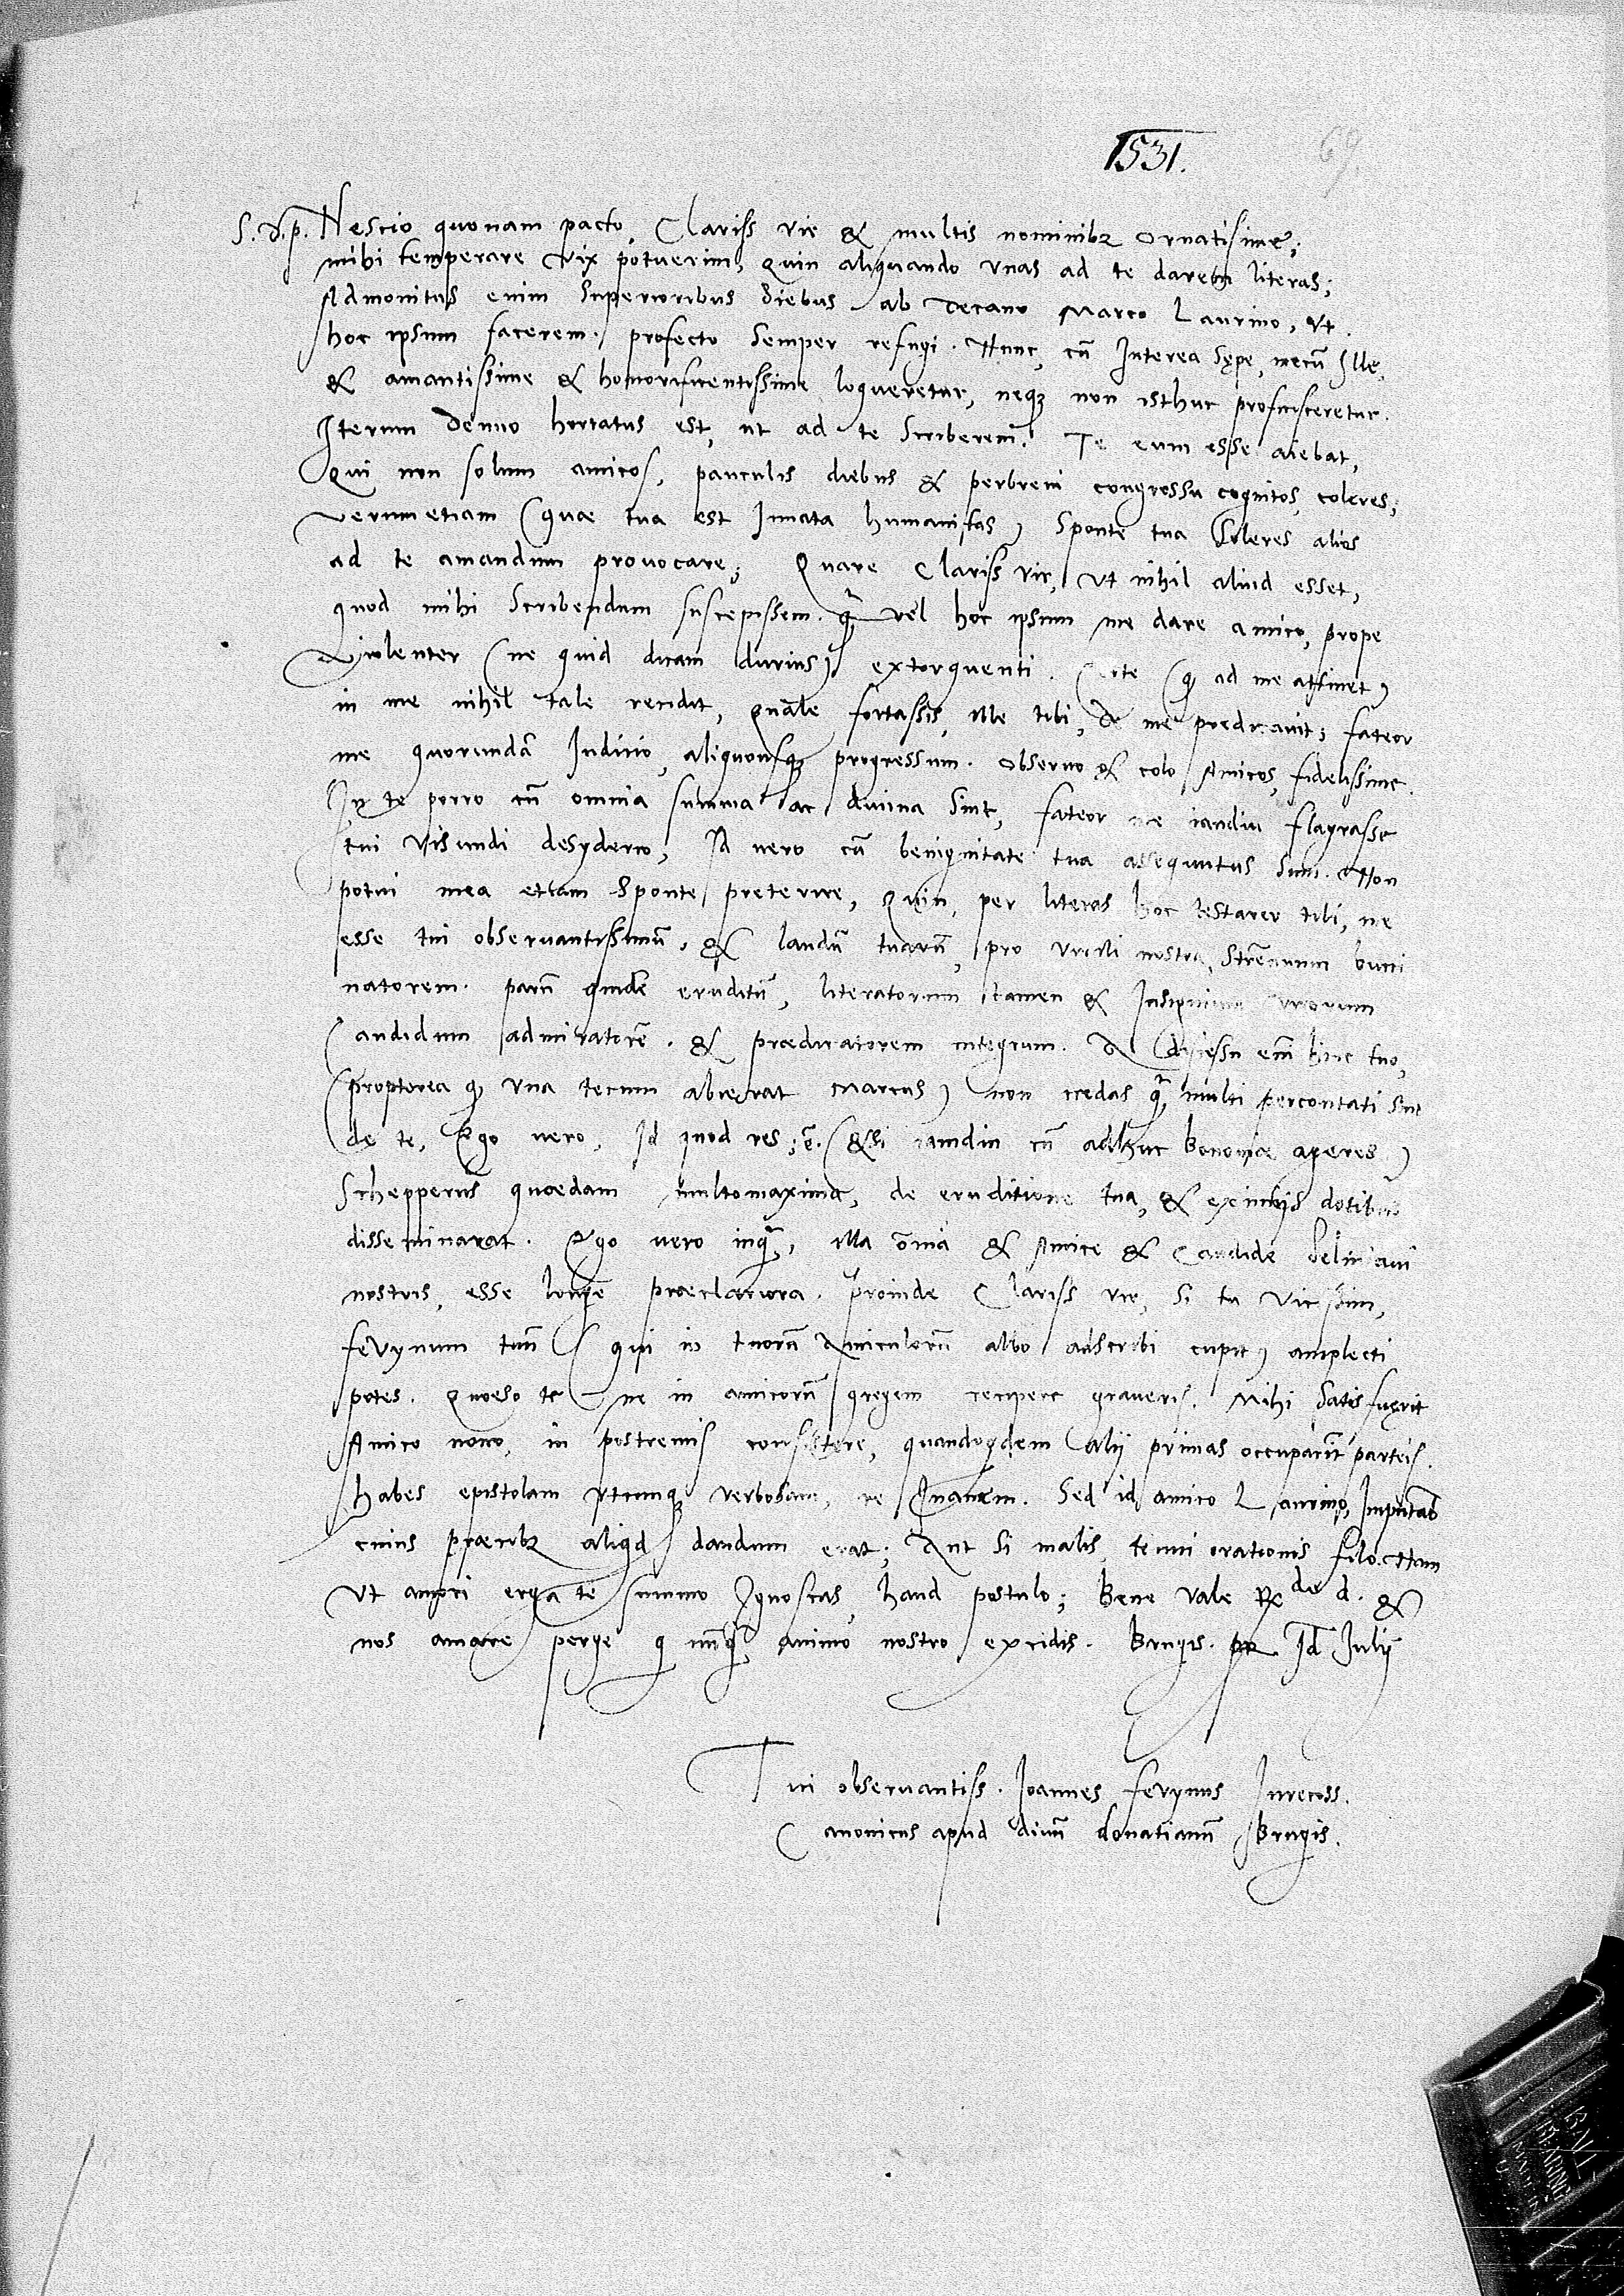 1531.
69
S. d. p. Nescio quonam pacto, Clariss vir & multis nominibꝫ ornatissime;
mihi temperare vix potuerim, quin aliquando unas ad te darem literas;
Admonitus enim superioribus diebus ab Decano Marco Laurino, ut
hoc ipsum facerem. profecto semper refugi. Nunc, cū Interea sępe, mecū Ille,
& amantissime & honorificentissime loqueretur, neqꝫ non isthuc proficisceretur.
Iterum denuo hortatus est, ut ad te scriberem. Te eum esse aiebat,
Qui non solum amicos, pauculis diebus & perbrevi congressu cognitos, coleres;
verumetiam (quae tua est Innata humanitas) sponte tua soleres alios
ad te amandum provocare; Quare Clariss vir, ut nihil aliud esset,
quod mihi scribendum suscepissem. q̃ vel hoc ipsum me dare amico, prope
violenter (ne quid dicam durius) extorquenti. Certe (q ad me attinet)
in me nihil tale reridit, Quale fortassis, ille tibi, de me predicavit; fateor
me quorundā Iudicio, aliquousqꝫ progressum. Observo & colo Amicos, fidelissime.
In te porro cū omnia summa ac divina sint, fateor me iamdiu flagrasse
tui visendi desyderio, Id vero cū benignitate tua assequutus sum. Non
potui mea etiam sponte preterire, Quin, per literas hoc testarer tibi, me
esse tui observantissimū, & laudū tuarū, pro virili nostra, strēnuum bucci
natorem. parū quidē eruditū, literatorum tamen & Insignium virorum
Candidum admiratorē. & praedicatorem integrum. A discessu eīm hinc tuo,
(propterea q una tecum abierat Marcus) non credas q̃ multi percontati sint
de te, Ego vero, Id quod res ē. (Etsi iamdiu cū adhuc Bononiae ageres)
Schepperus quaedam multomaxima, de eruditione tua, & eximiis dotibus
disseminarat. Ego vero inquā, illa oīa & Amice & Candide deliniavi
nostris, esse longe praeclariora. proinde Clariss vir, si tu vicissim,
fevynum tuū (qui in tuorū Amiculorū albo adscribi cupit) amplecti
potes. Quaeso te ne in amicorū gregem recipere graveris. Mihi satis fuerit
Amico novo, in postremis consistere, quandoqdem alii primas occuparīt parteis.
Habes epistolam utcunqꝫ verbosam, re Inanem. Sed id amico Laurino, Imputāb
cuius praecibꝫ aliqd dandum erat; Aut si malis, tenui orationis filo. Nam
Ut amori erga te summo Ignoscas, haud postulo; Bene vale Rde d. &
nos amare perge q nūq̃ animo nostro excidis. Brugis. pr Id Iulii
Tui observantiss. Ioannes fevynus Iurecoss.
Canonicus apud divū donatianū Brugis.